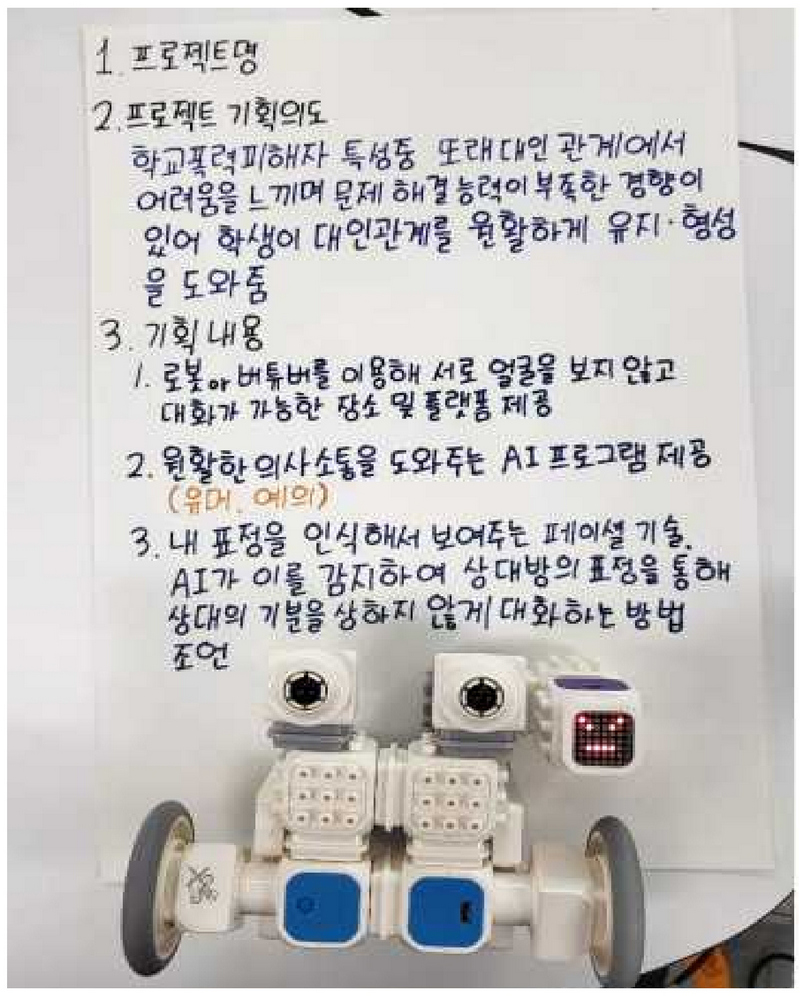 1. 프로젝트명
2. 프로젝트 기획의도
학교폭력피해자 특성중 또래대인 관계에서
어려움을 느끼며 문제 해결능력이 부족한 경향이
있어 학생이 대인관계를 원활하게 유지·형성
을 도와줌
3. 기획 내용
1. 로봇or버튜버를 이용해 서로 얼굴을 보지 않고
대화가 가능한 장소 및 플랫폼 제공
2. 원활한 의사소통을 도와주는 AI 프로그램 제공
(유머, 예의)
3. 내 표정을 인식해서 보여주는 페이셜 기술.
AI가 이를 감지하여 상대방의 표정을 통해
상대의 기분을 상하지 않게 대화하는 방법
조언